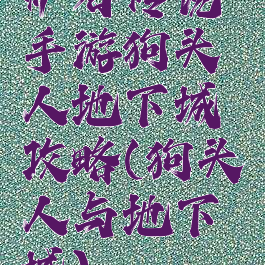 手游狗头
人地下城
攻略(狗头
人与地下
城)